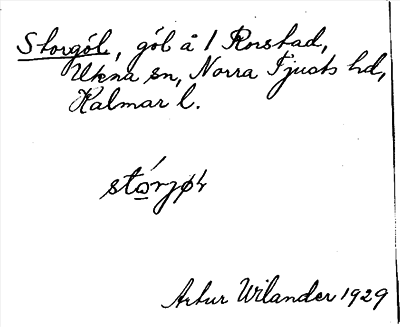 Storgöl, göl å 1 Rorstad,
Ukna sn, Norra Tjusts hd,
Kalmar l.
Artur Wilander 1929